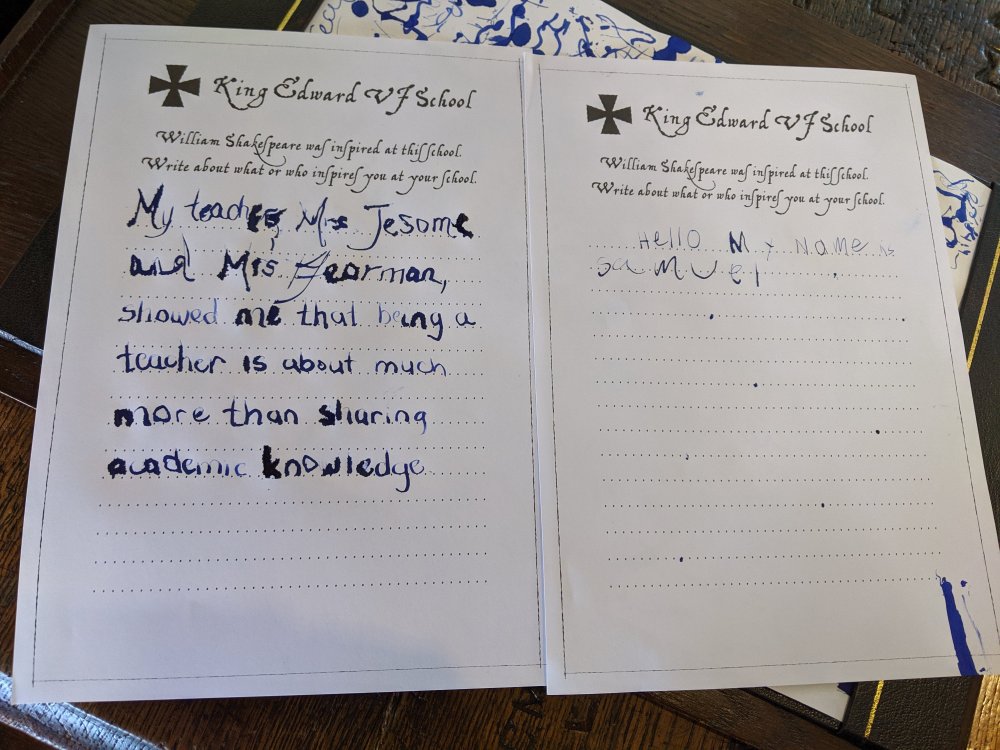 King Edward VI School
William Shakespeare was inspired at this school.
Write about what or who inspires you at your school.
My teacher, Mrs Jesome
and Mrs Fearman,
showed me that being a
teacher is about much
more than sharing
academic knowledge
King Edward VI School
William Shakespeare was inspired at this school.
Write about what or who inspires you at your school.
Hello My NaMe is
saMuel